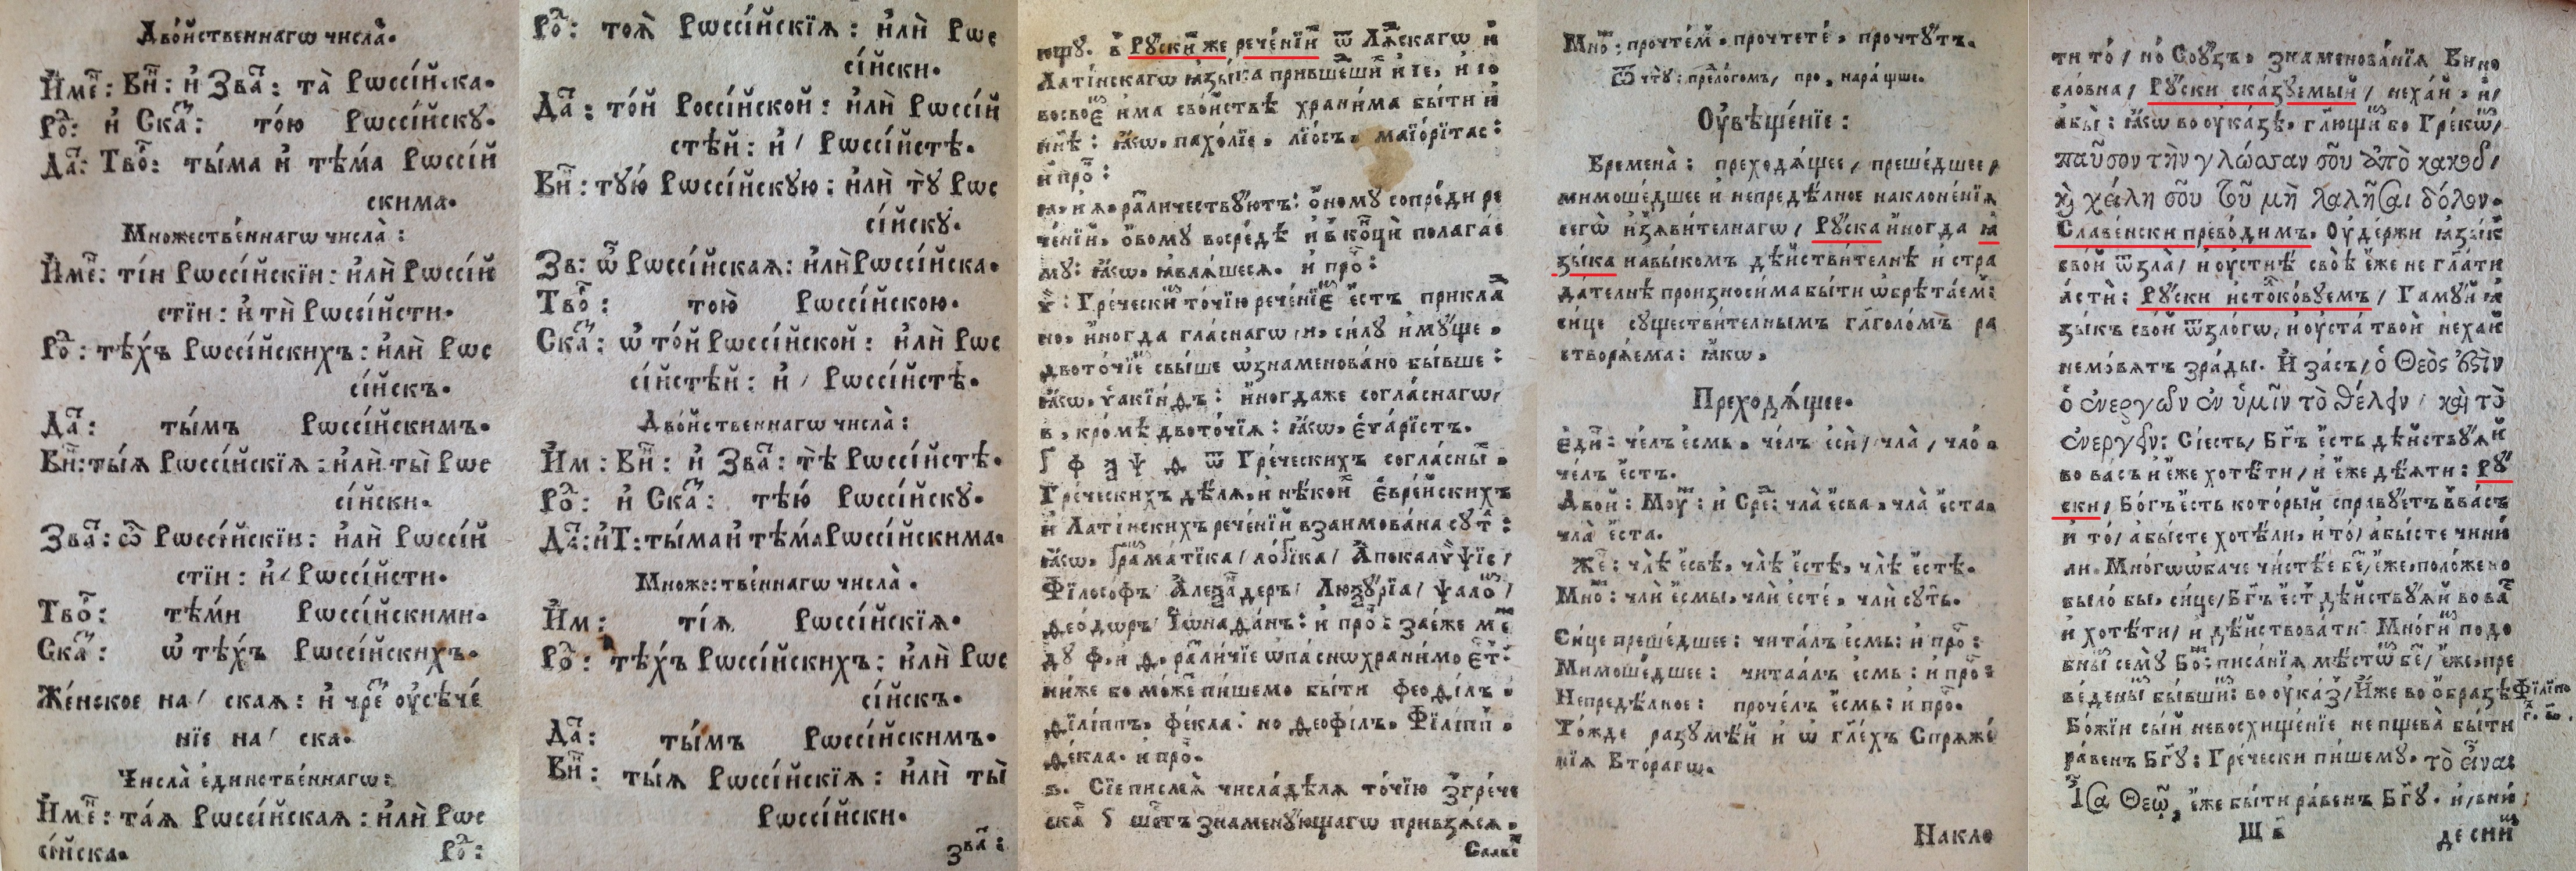 Дво́йственнагѡ числа̀.
И҆мен: Вин: и҆ Зват: та̀ Рѡссі́йска.
Род: и҆ Сказ: то́ю Рѡссі́йскꙋ.
Дат: Твор: ты́ма и҆ тѣ́ма Рѡссі́й
скима.
Мно́жественнагѡ числа̀:
И҆мен: ті́и Рѡссі́йскїи: и҆лѝ Рѡссі́й
стїи: и҆ тѝ Рѡссі́йсти.
Род: тѣ́хъ Рѡссі́йскихъ: и҆лѝ Рѡс
сі́йскъ.
Дат: ты́мъ Рѡссі́йскимъ.
Вин: ты́ѧ Рѡссі́йскїѧ: и҆лѝ ты̀ Рѡс
сі́йски.
Зват: ѽ Рѡссі́йскїи: и҆лѝ Рѡссі́й
стїи: и҆/ Рѡссі́йсти.
Твор: тѣ́ми Рѡссі́йскими.
Сказ: ѡ҆ тѣ́хъ Рѡссі́йскихъ.
Же́нское на/ скаѧ: и҆ чрез ᲂу҆сѣче́
нїе на/ ска.
Числа̀ є҆ди́нственнагѡ:
И҆мен: та́ѧ Рѡссі́йскаѧ: и҆лѝ Рѡс
сі́йска.
Род:
Род: тоѧ̀ Рѡссі́йскїѧ: и҆лѝ Рѡс
сі́йски.
Дат: то́й Россі́йской: и҆лѝ Рѡссі́й
стѣй: и҆/ Рѡссі́йстѣ.
Вин: тꙋю̀ Рѡссі́йскꙋю: и҆лѝ тꙋ̀ Рѡс
сі́йскꙋ.
Зв: ѽ Рѡссі́йскаѧ: и҆лѝ Рѡссі́йска.
Твор: то́ю Рѡссі́йскою.
Сказ: ѡ҆ то́й Рѡссі́йской: и҆лѝ Рѡс
сі́йстѣй: и҆/ Рѡссі́йстѣ.
Дво́йственнагѡ числа̀:
И҆м: Вин: и҆ Зват: тѣ̀ Рѡссі́йстѣ.
Род: и҆ Сказ: тѣ́ю Рѡссі́йскꙋ.
Дат: и҆ Т: ты́ма и҆ тѣ́ма Рѡссі́йскима.
Мно́жественнагѡ числа̀.
И҆м: ті́ѧ Рѡссі́йскїѧ.
Род: тѣ́хъ Рѡссі́йскихъ: и҆лѝ Рѡс
сі́йскъ.
Дат: ты́мъ Рѡссі́йскимъ.
Вин: ты́ѧ Рѡссі́йскїѧ: и҆лѝ ты̀
Рѡссі́йски.
Зват:
ющꙋ. в Рꙋ́ски же рече́нїи ѿ Лѧ́скагѡ и҆
Лати́нскагѡ ꙗ҆зы́ка прише́дши и҆ їе, и҆ їо
восвоей и҆ма сво́йствѣ храни́ма бы́ти и҆
ннѣ: ꙗ҆́кѡ. пахо́лїе. лїо́съ. маїо́рїтас:
и҆ проч:
ꙗ, и҆ ѧ. разли́чествꙋютъ: ѻ҆́номꙋ сопре́ди ре
че́нїй, ѻ҆́вомꙋ восре́дѣ и҆ в ко́нци полага́е
мꙋ: ꙗ҆́кѡ. ꙗ҆влѧ́шесѧ. и҆ проч:
ѵ: Гре́чески то́чїю рече́нїем є҆́стъ прикла́д
но. и҆ногда гла́снагѡ и. си́лꙋ и҆мꙋ́ще.
двото́чїе свы́ше ѡ҆знаменова́но бы́вше:
ꙗ҆́кѡ. ѵ҆аки́нѳъ: и҆ногда же согла́снагѡ,
в, кро́мѣ двото́чїѧ: ꙗ҆́кѡ. є҆ѵа́рїстъ.
ґ ф ѯ ѱ ѳ ѿ Гре́ческихъ согла́сны.
Гре́ческихъ дѣ́лѧ, и҆ нѣ́кой Є҆вре́йскихъ
и҆ Лати́нскихъ рече́нїй взаимова́на сꙋт:
ꙗ҆́кѡ. Ґрама́тїка/ ло́ґїка/ А҆пока́лѷѱїс/
Фїло́софъ/ А҆леѯа́ндеръ/ Лю́ѯꙋрїа/ ѱало́м/
Ѳео́дѡръ/ І҆ѡнаѳа́нъ: и҆ проч: за е҆́же меж
дꙋ ф, и҆ ѳ, разли́чїе ѡ҆па́снѡ храни́мо є҆ст:
ни́же бо мо́жет пи́шемо бы́ти феоді́лъ.
ѳїлі́ппъ. фе́кла: но ѳеофі́лъ. Фїлі́пп.
ѳе́кла. и҆ проч.
ѕ. Сїе писмѧ̀ числа̀ дѣ́лѧ то́чїю з гре́че
ска ϛ ше́сть знаменꙋ́ющагѡ привзѧ́сѧ.
Мно: прочте́м. прочтете́. прочтꙋ́тъ.
Ѿ чтꙋ̀: предло́гомъ/ про. нара́щше.
Оу҆вѣще́нїе:
Времена̀: преходѧ́щее/ преше́дшее/
мимоше́дшее и҆ непредѣ́лное наклоне́нїѧ
сегѡ̀ и҆з̾ѧви́телнагѡ/ Рꙋ́ска и҆ногда ꙗ҆
зы́ка навы́комъ дѣйстви́телнѣ и҆ стра
да́телнѣ произноси́ма бы́ти ѡ҆брѣта́ем:
си́це сꙋществи́телнымъ гл҃голо́мъ ра
створѧ́ема: ꙗ҆́кѡ.
Преходѧ́щее.
Е҆ди́н: че́лъ е҆́смь. че́лъ е҆сѝ/ чла̀/ чло̀.
че́лъ е҆́стъ.
Двой: Мꙋж: и҆ Сред: чла̀ е҆́сва. чла̀ е҆́ста.
чла̀ е҆́ста.
Же: члѣ̀ е҆́свѣ. члѣ̀ е҆́стѣ. члѣ̀ е҆́стѣ.
Мно: члѝ е҆смы̀. члѝ е҆сте́. члѝ сꙋ́ть.
Си́це преше́дшее: чита́лъ е҆́смь: и҆ проч:
Мимоше́дшее: чита́алъ е҆́смь: и҆ проч:
Непредѣ́лное: проче́лъ е҆́смь: и҆ проч.
То́жде разꙋмѣ́й и҆ ѡ҆ гл҃ехъ Спрѧже́
нїѧ Второ́гѡ.
Накло
ти то́/ но̀ Сою́зъ. знаменова́нїѧ Вино
сло́вна/ Рꙋ́ски ска́зꙋемый/ неха́й. и҆/
абы̀: ꙗ҆́кѡ во ᲂу҆ка́зѣ. гл҃ющи бо Гре́кѡм/
παῦσον τὴν γλώσσαν σοῦ ἀπὸ κακοῦ/
κὶ χείλη σοῦ τοῦ μὴ λαλῆσαι δόλον.
Славе́нски прево́димъ. Оу҆де́ржи ꙗ҆зы́к
сво́й ѿ зла̀/ и҆ ᲂу҆стнѣ̀ своѝ е҆́же не гл҃ати
льстѝ: Рꙋ́ски и҆стоко́вꙋемъ/ Гамꙋ́й ꙗ
зы́къ сво́й ѿ зло́гѡ, и҆ ᲂу҆ста̀ твоѝ неха́й
немо́вѧтъ зра́ды. И҆ за́съ/ ὁ Θεὸς ἐστὶν
ὁ ἐνεργῶν ἐν ὑμῖν τὸ θέλειν/ καὶ τὸ
ἐνεργεῖν: Сі́есть/ Бг҃ъ е҆́сть дѣ́йствꙋѧй
во ва́съ и҆ е҆́же хотѣ́ти/ и҆ е҆́же дѣ́ѧти: Рꙋ́
ски/ Бо́гъ е҆́сть кото́рый справꙋ́етъ в ва́съ
и҆ то́/ абы́сте хотѣ́ли, и҆ то́/ абы́сте чини́
ли. Мно́гѡ ѻ҆ба́че чи́стѣе бе/ е҆́же, поло́жено
бы́ло бы. си́це/ Бг҃ъ е҆́ст дѣ́йствꙋѧй во вас
и҆ хотѣ́ти/ и҆ дѣ́йствовати: Мно́ги подо
бны семꙋ̀ Бож: писа́нїѧ мѣ́стѡм бе/ е҆́же, пре
ве́дены бы́вши: во ᲂу҆ка́з/ И҆́же во ѻ҆́бразѣ
Бо́жїи сы́й невосхище́нїе непщева̀ бы́ти
ра́венъ Бг҃ꙋ: Гре́чески пи́шемꙋ. τὸ εἶναι
ἶσα Θεῷ, е҆́же бы́ти ра́венъ Бг҃ꙋ.
Фїлі́пп
Щ в